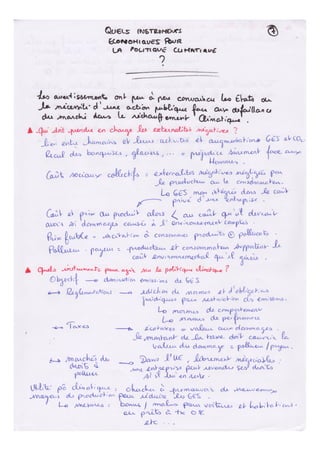 QUELS INSTRUMENTS
ECONOMIQUES POUR
LA POLITIQUE CLIMATIQUE
?
1
Les avertissements ont peu à peu convaincu les Etats de
la nécessité d'une action publique face aux défaillances
du marché dans le réchauffement climatique.
Qui doit prendre en charge les externalités négatives ?
lien entre humains et leurs activités et augmentation GES et CO2
Recul des banquises, glaciers, ... = préjudice sûrement face aux
Hommes.
Coûts sociaux collectifs : externalités négatives négligées par
le producteur ou le consommateur.
Le GES non intégré dans le coût
privé d'une entreprise.
Coût et prix du produit alors < au coût qu'il devrait
avoir si dommages causés à l'environnement compris
Prix faible = incitation à consommer produits polluants
Pollueur-payeur = producteur et consommateur supportent le
coût environnemental qu'il génère.
Quels instruments pour agir sur la politique climatique ?
Objectif → diminution émissions de GES
↔ Réglementation → édiction de normes et d'obligations
juridiques pour restriction des émissions.
↳ normes de comportement
↳ normes de performance
↔ Taxes → écotaxes = valeur aux dommages.
le montant de la taxe doit couvrir la
valeur du dommage = pollueur/payeur.
↳ marchés de → Dans l'UE, librement négociables.
droits à une entreprise peut revendre ses droits
polluer si il lui en reste.
Utilité pô climatique : chacun à promouvoir de nouveaux
moyens de production pour réduire les GES.
↳ mesures : bonus / malus pour voitures et habitations.
eu prêts à tx 0%
etc...